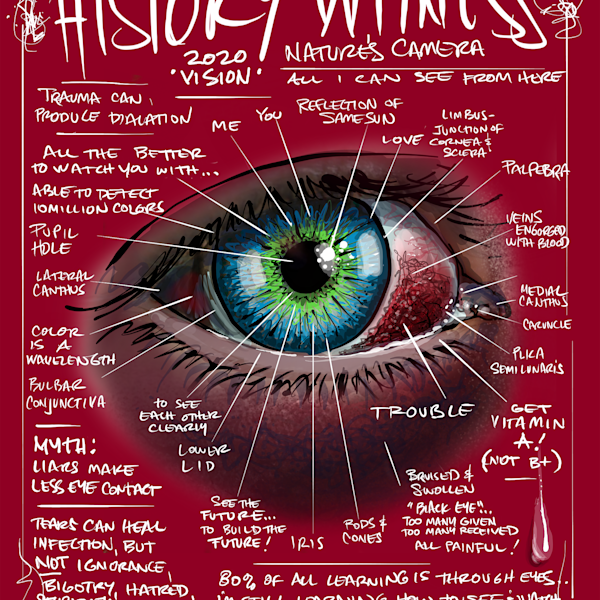 HISTORY WITNESS
2020
"VISION"
NATURE'S CAMERA
ALL I CAN SEE FROM HERE
TRAUMA CAN
PRODUCE DIALATION
ME
YOU
REFLECTION OF
SAME SUN
LOVE
LIMBUS-
JUNCTION OF
CORNEA &
SCLERA!
PALPEBRA
ALL THE BETTER
TO WATCH YOU WITH...
ABLE TO DETECT
10 MILLION COLORS
PUPIL
HOLE
VEINS
ENGORGED
WITH BLOOD
LATERAL
CANTHUS
MEDIAL
CANTHUS
CARUNCLE
COLOR
IS A
WAVELENGTH
PLICA
SEMILUNARIS
BULBAR
CONJUNCTIVA
TO SEE
EACH OTHER
CLEARLY
TROUBLE
GET
VITAMIN
A!
(NOT B+)
MYTH:
LIARS MAKE
LESS EYE CONTACT
LOWER
LID
BRUISED &
SWOLLEN
"BLACK EYE"...
TOO MANY GIVEN
TOO MANY RECEIVED
ALL PAINFUL!
SEE THE
FUTURE...
TO BUILD THE
FUTURE!
IRIS
RODS &
CONES
TEARS CAN HEAL
INFECTION, BUT
NOT IGNORANCE,
BIGOTRY, HATRED,
80% OF ALL LEARNING IS THROUGH EYES...
I'M STILL LEARNING HOW TO SEE & WATCH